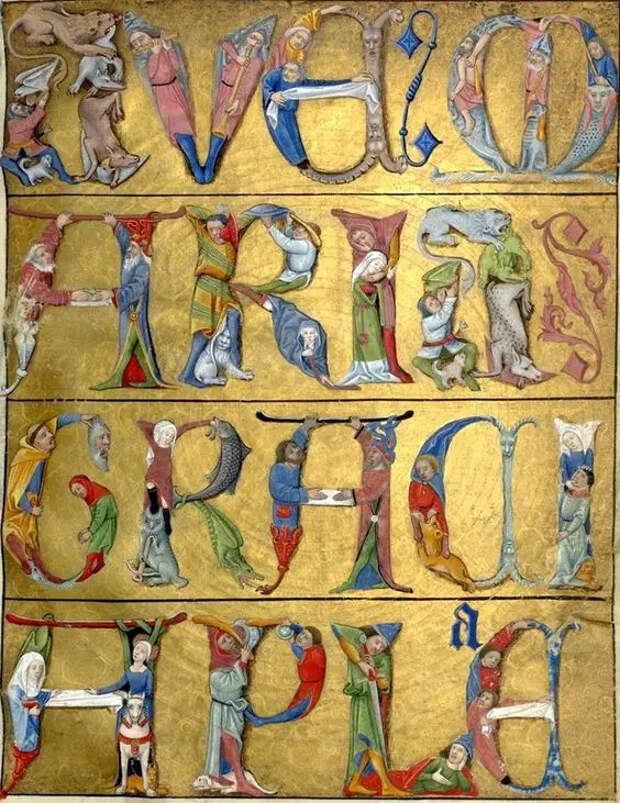 AVE M
ARIA
GRACI
A PL a E